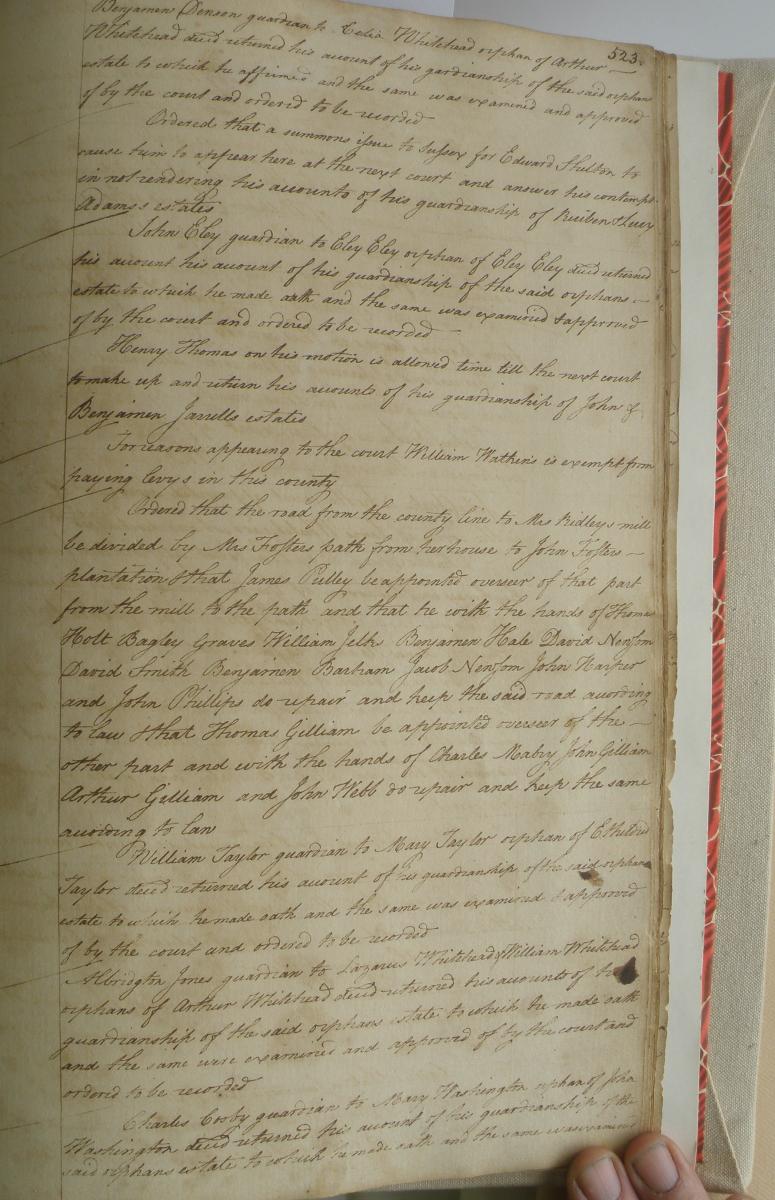 523.
Benjamen Denson guardian to Celia Whitehead orphan of Arthur
Whitehead decd returned his account of his gardianship of the said orphans
estate to which he affirmed and the same was examined and approved
of by the court and ordered to be recorded
Ordered that a summons issue to Sussex for Edward Shelton to
cause him to appear here at the next court and answer his contempt
in not rendering his accounts of his guardianship of Reuiben & Lucy
Adams's estates
John Eley guardian to Eley Eley orphan of Eley Eley decd returned
his account his account of his guardianship of the said orphans
estate to which he made oath and the same was examined & approved
of by the court and ordered to be recorded
Henry Thomas on his motion is allowed time till the next court
to make up and return his accounts of his guardianship of John &
Benjamen Jarrells estates
For reasons appearing to the court William Watkins is exempt from
paying levys in this county
Ordered that the road from the county line to Mrs Ridleys mill
be divided by Mrs Fosters path from her house to John Fosters
plantation & that James Pulley be appointed overseer of that part
from the mill to the path and that he with the hands of Thomas
Holt Bagley Graves William Jelks Benjamen Hale David Newsom
David Smith Benjamen Barham Jacob Newsom John Harper
and John Phillips do repair and keep the said road acording
to law & that Thomas Gilliam be appointed overseer of the
other part and with the hands of Charles Mabry John Gilliam
Arthur Gilliam and John Webb do repair and keep the same
acording to law
William Taylor guardian to Mary Taylor orphan of Etheldred
Taylor decd returned his account of his guardianship of the said orphans
estate to which he made oath and the same was examined & approved
of by the court and ordered to be recorded
Albridgton Jones guardian to Lazarus Whitehead & William Whitehead
orphans of Arthur Whitehead decd returned his accounts of his
guardianship of the said orphans estate to which he made oath
and the same were examined and approved of by the court and
ordered to be recorded
Charles Cosby guardian to Mary Washington orphan of John
Washington decd returned his account of his guardianship of the
said orphans estate to which he made oath and the same was examined